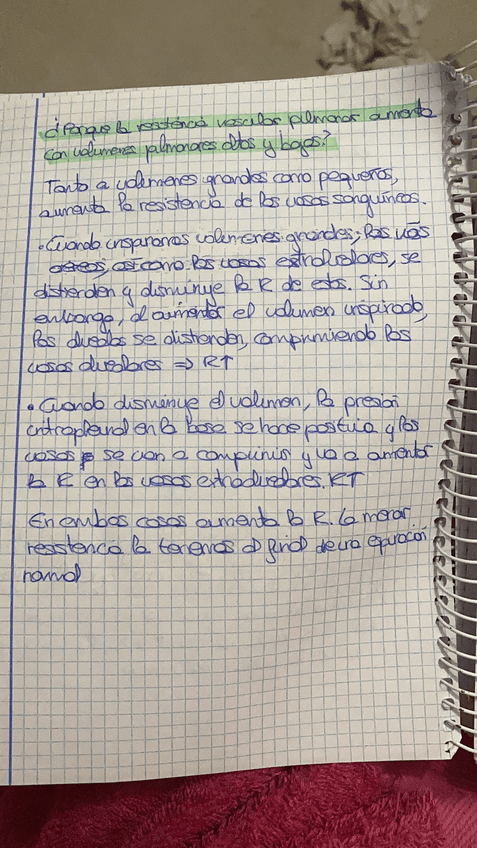 ¿Porque la resistencia vascular pulmonar aumenta
con volúmenes pulmonares altos y bajos?
Tanto a volúmenes grandes como pequeños,
aumenta la resistencia de los vasos sanguíneos.
• Cuando inspiramos volúmenes grandes, las vías
aéreas, así como los vasos extralveolares, se
distienden y disminuye la R de estos. Sin
embargo, al aumentar el volumen inspirado,
los alveolos se distienden, comprimiendo los
vasos alveolares ⇒ R↑
• Cuando disminuye el volumen, la presión
intrapleural en la base se hace positiva y los
vasos se van a comprimir y va a aumentar
la R en los vasos extraalveolares. R↑
En ambos casos aumenta la R. La menor
resistencia la tenemos al final de una espiración
normal